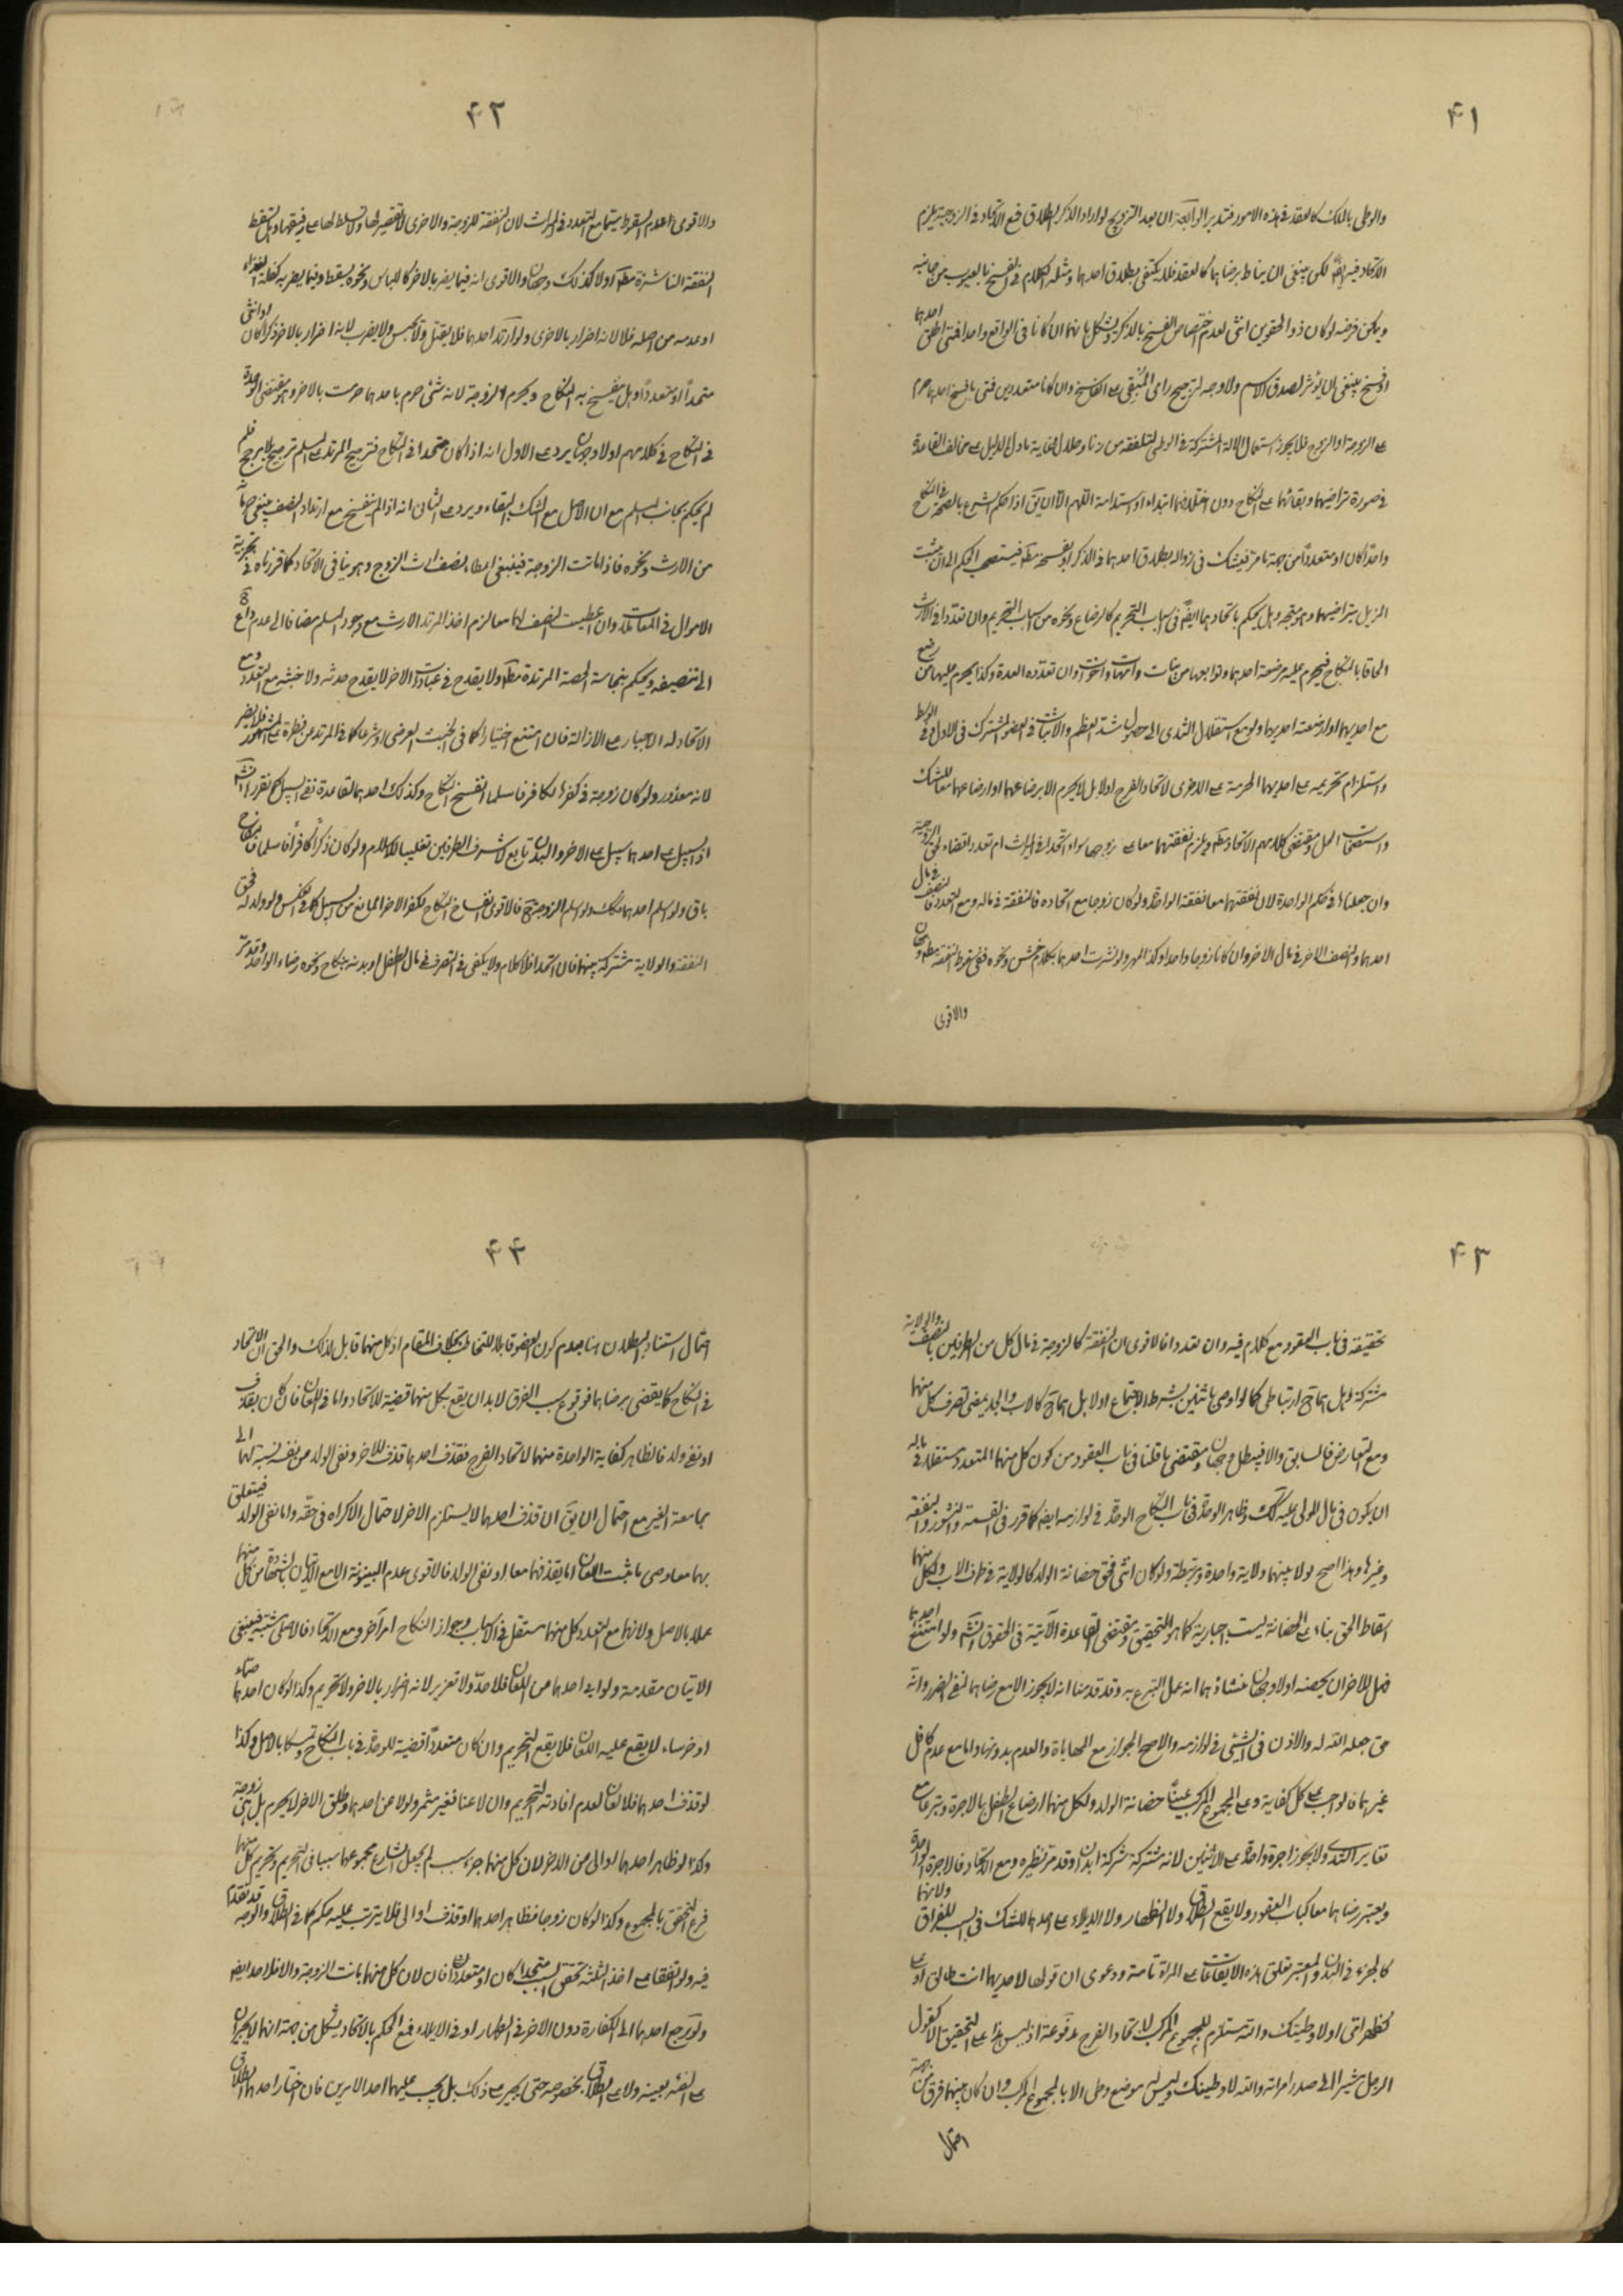 ۴۱
والوطی بالملک کالعقد فی هذه الامور فتدبر الرابعة ان بعد التزویج لو اراد الذکر الطلاق فمع الاتحاد فی الزوجیة یلزم
الاتحاد فیه ایضا لکن ینبغی ان یناط برضاهما کالعقد فلا یکتفی بطلاق احدهما ومثله الکلام فی الفسخ بالعیوب من جانبه
ویمکن فرضه لو کان ذو الحقوین انثی لعدم اختصاص الفسخ بالذکر ویشکل بانهما ان کانا فی الواقع واحدا فمتی اطلق احدهما
او فسخ ینبغی ان یؤثر لصدق الاسم ولا وجه لترجیح رای المبقی علی الفاسخ وان کانا متعددین فمتی فسخ احدهما حرم
علی الزوجة او الزوج فلا یجوز استعمال الالة المشترکة فی الوطی لتلفقه من زنا وحلال فغایة ما دل الدلیل علی مخالف القاعدة
فی صورة تراضیهما وبقائهما علی النکاح دون اختلافهما ابتداء او استدامة اللهم الا ان یق اذا حکم الشرع بالصحة فی النکاح
واحدا کان او متعددا من جهة ما مر فیشک فی زواله بطلاق احدهما فی الذکر او بفسخه مطلقا فیستصحب الحکم الی ان یثبت
المزیل بتراضیهما وهو متجه وهل یحکم باتحادهما ایضا فی اسباب التحریم کالرضاع ونحوه من اسباب التحریم وان تعددا فی الارث
الحاقا بالنکاح فیحرم علیه مرضعة احدهما وتوابعها من بنات وامهات واخوات وان تعددوا لعدة وکذا یحرم علیهما من رضع
مع احدیهما او ارضعته احدیهما ولو مع استقلال الثدی الی حصول شدة العظم والانبات فی العضو المشترک فی الاول وفی الوسط
واستلزام تحریمه علی احدیهما الحرمة علی الاخری لاتحاد الفرج اولا بل لا یحرم الا برضاعهما او ارضاعهما معا للشک
واستصحاب الحل ومقتضی کلامهم الاتحاد مطلقا ویلزم نفقتهما معا علی زوجها سواء اتحدا فی المیراث ام تعددا قضاء لحق الزوجیة
وان جعلناها فی حکم الواحدة لان نفقتهما معا نفقة الواحد ولو کان زوجا مع اتحاده فالنفقة فی ماله ومع التعدد فالنصف فی مال
احدهما والنصف الاخر فی مال الاخر وان کانا زوجا واحدا وکذا المهر ولو نشزت احدهما بکلام خشن ونحوه ففی سقوط النفقة مطلقا وجهان
والاقوی
۴۲
والاقوی عدم السقوط سیما مع التعدد فی المیراث لان النفقة للزوجة والاخری لا تقصیر لها ولا تسلط لها علی رفیقها وهل تسقط
النفقة الناشزة مطلقا اولا کذلک وجهان والاقوی انه فیما یضر بالاخر کاللباس ونحوه یسقط وفیما یضر به کقلة الغذاء
او عدمه من اصله فلا لانه اضرار بالاخری ولو ارتد احدهما فلا یقتل ولا یحبس ولا یضرب لانه اضرار بالاخر ذکرا کان او انثی
متحدا او متعددا وهل ینفسخ به النکاح ویحرم الزوجة لانه شئ حرم باحدهما حرمت بالاخر وهو مقتضی الوحدة
فی النکاح فی کلامهم اولا وجهان یرد علی الاول انه اذا کان متحدا فی النکاح فترجیح المرتد علی المسلم ترجیح بلا مرجح فلم
لم یحکم بجانب المسلم مع ان الاصل مع الشک البقاء ویرد علی الثانی انه اذا لم ینفسخ مع ارتداد النصف ینبغی
من الارث ونحوه فاذا ماتت الزوجة فینبغی اعطاء نصف ارث الزوج وهو ینافی الاتحاد کما قررناه فی
الاموال فی المقامات وان اعطیت النصف لهما معا لزم اخذ المرتد الارث مع وجود المسلم مضافا الی عدم
الی تنصیفه ویحکم بنجاسة الحصة المرتدة مطلقا ولا یقدح فی عبادات الاخر لا یقدح حدثه ولا خبثه مع التعدد ومع
الاتحاد له الاجبار علی الازالة فان امتنع اختیارا کما فی الخبث العرضی او شرعا کما فی المرتد عن فطرة علی المشهور فلا یضر
لانه معذور ولو کان زوجة فی کفر الکافر فاسلما انفسخ النکاح وکذلک احدهما لقاعدة نفی السبیل کما تقرر
اذ السبیل علی احدهما سبیل علی الاخر والبدن تابع لاشرف الطرفین تغلیبا للاسلام ولو کان ذکرا کافرا فاسلما فالنکاح
باق ولو اسلم احدهما فکذلک ولو اسلم الزوجة فالاقوی انفساخ النکاح لکفر الاخر المانع من السبیل کما فی العکس ولو ولد له فحق
النفقة والولایة مشترکة بینهما فان اتحدا فلا کلام ولا یکفی فی التصرف فی مال الطفل او بدنه بنکاح ونحوه رضاء الواحد وقد مر
۴۳
تحقیقه فی باب العقود مع کلام فیه وان تعددا فالاقوی ان النفقة کالزوجة فی مال کل من الطرفین بالنصف والولایة
مشترکة وهل هما ارتباطی کما لو اوصی باثنین بشرط الاجتماع اولا بل هما کالاب والجد یمضی تصرف کل منهما
ومع التعارض فالسابق والا فیبطل وجهان ومقتضی ما قلنا فی باب العقود من کون کل منهما المتعدد مستقلا فی ماله
ان یکون فی مال المولی علیه کذلک وظاهر الوحدة فی باب النکاح الوحدة فی لوازمه ایضا کما قرر فی القسمة والنشوز والنفقة
وغیرها وهذا اصح لولا بینهما ولایة واحدة مرتبطة ولو کان انثی فحق حضانة الولد کالولایة فی طرف الاب ولکل منهما
اسقاط الحق بناء علی الحضانة لیست اجباریة کما هو التحقیق ومقتضی القاعدة الآتیة فی الحقوق ولو امتنع احدهما
فهل للاخر ان یحضنه اولا وجهان منشاؤهما انه عمل التبرع به وقد قدمنا انه لا یجوز الا مع رضاهما لنفی الضرر وانه
حق جعله الله له والاذن فی الشئ فی لوازمه والاصح الجواز مع المهایاة والعدم بدونها واما مع عدم کافل
غیرهما فالواجب علی کل کفایة وعلی المجموع المرکب عینا حضانة الولد ولکل منهما ارضاع الطفل بالاجرة وتبرعا مع
تغایر الثدی ولا یجوز اجرة واحد علی الاثنین لانه مشترکة شرکة ابدان وقد مر نظیره ومع الاتحاد فالاجرة الواحدة
ویعتبر رضاهما معا کباب العقود ولا یقع الطلاق ولا الظهار ولا الایلاء علی احدهما للشک فی السبب للفراق ولانهما
کالجزء فی البدن والمعتبر تعلق هذه الایقاعات علی المراة تامة ودعوی ان قولها لاحدیهما انت طالق او علی
کظهر امی اولا وطیتک والله مستلزم للمجموع المرکب لاتحاد الفرج مدفوعة اذ لیس هذا علی التحقیق الا کقول
الرجل مشیرا الی صدر امراته والله لا وطیتک ولیس لی موضع وطی الا بالمجموع المرکب وان کان بینهما فرق من جهة
احتمال
۴۴
احتمال استناد البطلان هنا بعدم کون العضو قابلا للتخاطب بخلاف المقام اذ کل منهما قابل لذلک والحق ان الاتحاد
فی النکاح کما یقضی برضاهما فوقوع سبب الفرق لابد ان یقع بکل منهما قضیة للاتحاد واما فی اللعان فان کان بقذف
او نفی ولد فالظاهر کفایة الواحدة منهما لاتحاد الفرج فقذف احدهما قذف للاخر ونفی الولد من نفسه نسبة لهما الی
مجامعة الغیر مع احتمال ان یق ان قذف احدهما لا یستلزم الاخر لاحتمال الاکراه فی حقه واما نفی الولد فیتعلق
بهما معا ومتی ما ثبت اللعان اما بقذفهما معا او نفی الولد فالاقوی عدم البینونة الا مع الاتیان بالشهادة من کل منهما
عملا بالاصل ولانهما مع التعدد کل منهما مستقل فی الاکتساب وجواز النکاح امر آخر ومع الاتحاد فالاصل مشتبه فینبغی
الاتیان مقدمة ولو ابی احدهما من اللعان فلا حد ولا تعزیر لانه اضرار بالاخر ولا تحریم وکذا لو کان احدهما صماء
او خرساء لا یقع علیه اللعان فلا یقع التحریم وان کان متعددا قضیة للوحدة فی باب النکاح وتمسکا بالاصل وکذا
لو قذف احدهما فلا لعان لعدم افادته التحریم وان لاعنا فغیر مثمر ولو لاعن احدهما وطلق الاخر لا یحرم بل هی زوجة
وکذا لو ظاهر احدهما او الی من الاخر لان کل منهما جزء سبب لم یجعل الشارع مجموعهما سببا فی التحریم وتحریم کل منهما
فرع التحقق بالمجموع وکذا لو کان زوجا فظاهر احدهما او قذف او الی فلا یترتب علیه حکم کما فی الطلاق والوجه قد تقدم
فیه ولو اتفقا علی احد الثلثة تحقق السبب متحدا کان او متعددا فان لان کل منهما بانت الزوجة والا فلا حد ایضا
ولو رجع احدهما الی الکفارة دون الاخر فی الظهار او فی الایلاء فمع الحکم بالاتحاد یشکل من جهة انهما لا یجبران
علی الفئه بعینه ولا علی الطلاق بخصوصه حتی یجبر علی ذلک بل یجب علیهما احد الامرین فان اختار احدهما الطلاق